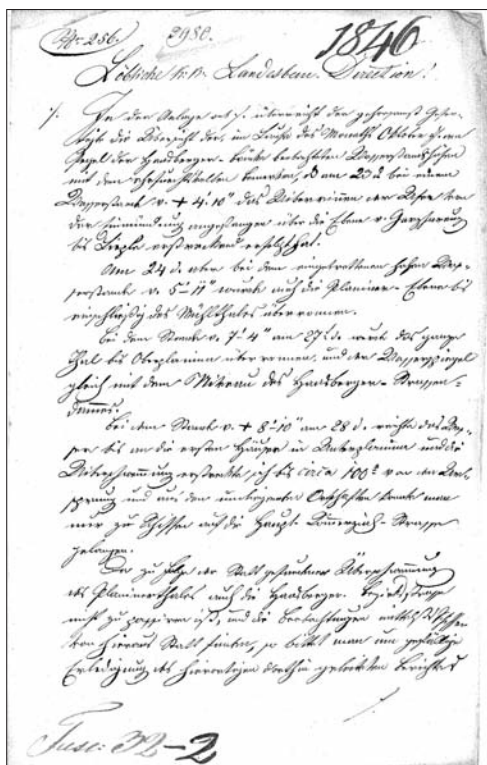 No 256. 2980. 1846
Löbliche k. k. Landesbau-Direction!
In der Anlage überreicht der gehorsamst Gefer-
tigte die Übersicht der, im Laufe des Monaths Oktober d. J. am
Pegel der Haasberger-Brücke beobachteten Wasserstandshöhen
mit dem daß am 23 d. bei einem
Wasserstande v. + 4' 10" das der
der angefangen über die Ebene v.
bis erstreckend erfolgt hat.
Am 24 d. aber bei dem eingetrettenen hohen Was-
serstande v. 5' 11" wurde auch die Planiner-Ebene bis
einschließig des Mühlthales überronnen.
Bei dem Stande v. 7' 4" am 27 d. ward das ganze
Thal bis Oberplanina überronnen, und der Wasserspiegel
gleich mit dem Niveau des Haasberger-Strassen-
dammes.
Bei dem Stande v. + 8' 10" am 28 d. reichte das Was-
ser bis an die ersten Häuser in Unterplanina und die
Überschwemmung erstreckte sich bis circa 100° von der
und aus den Ortschaften konnte man
nur zu Schiffen auf die Haupt-Commerzial-Strasse
gelangen.
Da zu Folge der Statt gefundenen Überschwemmung
des Planinerthales auch die Haasberger-Bezirksstrasse
nicht zu passiren ist, und die Beobachtungen mittelst Schiffen
von hieraus Statt finden, so bittet man um gefällige
Erledigung des hierortigen dorthin geleiteten Berichtes
Fasc: 32-2